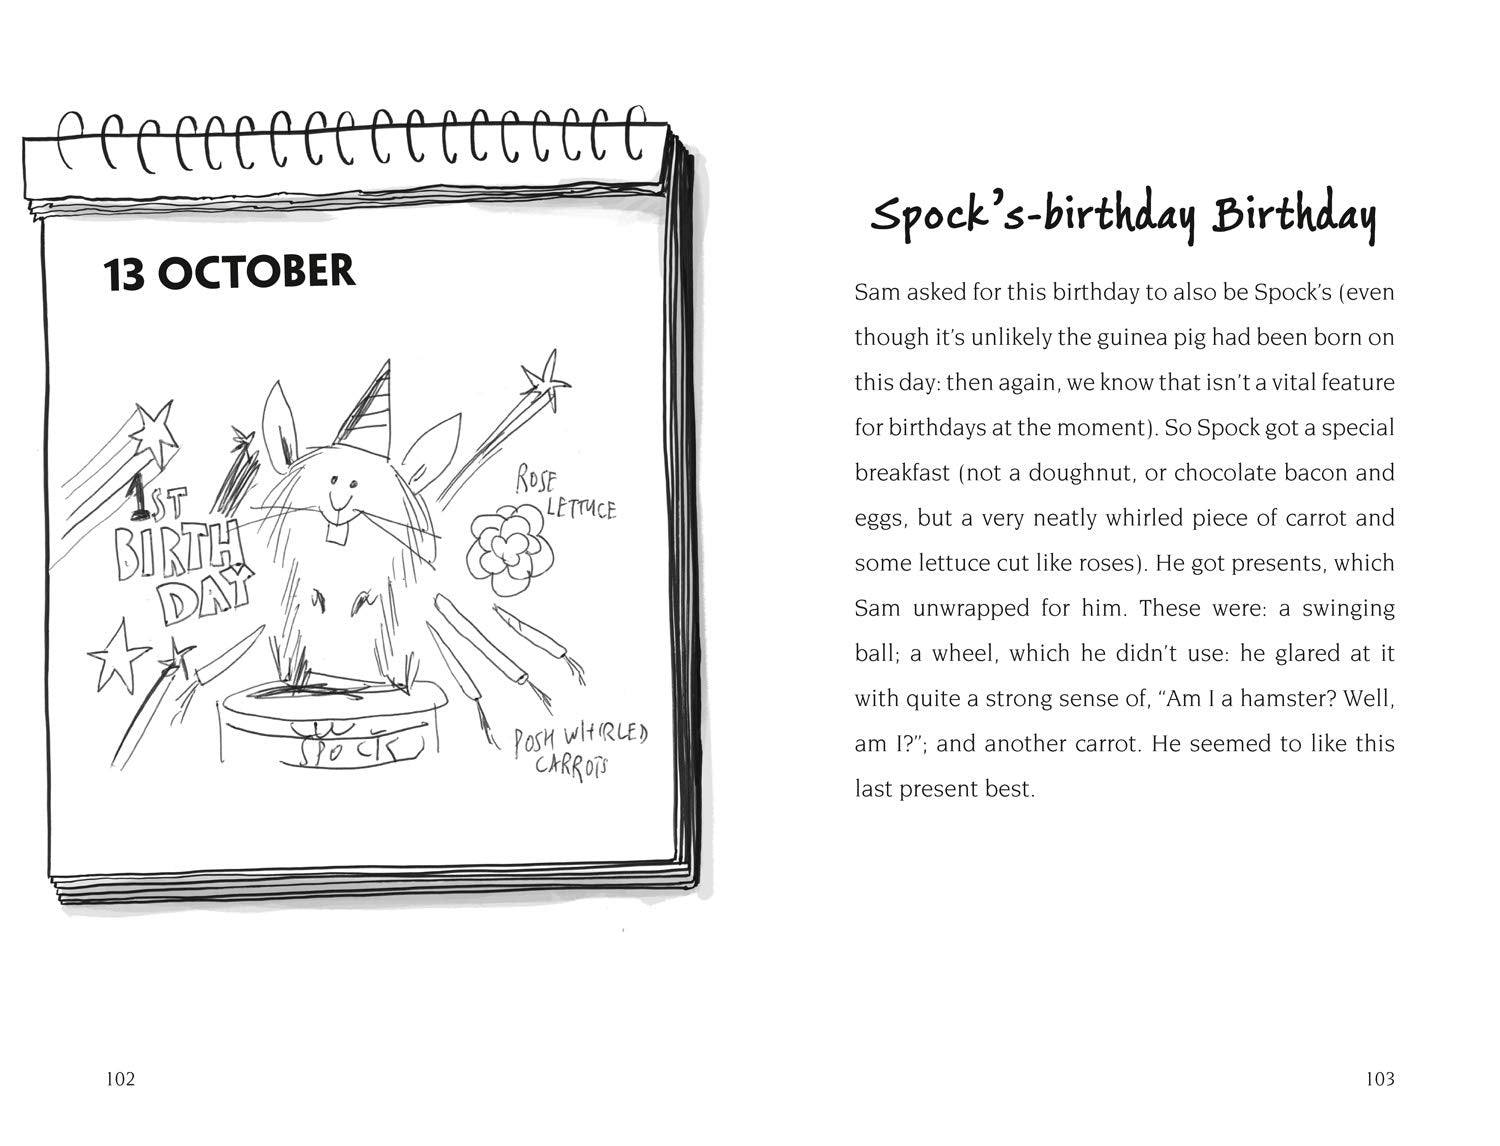 13 OCTOBER
1ST
BIRTH
DAY
ROSE
LETTUCE
POSH WHIRLED
CARROTS
SPOCK
102
Spock’s-birthday Birthday
Sam asked for this birthday to also be Spock’s (even
though it’s unlikely the guinea pig had been born on
this day: then again, we know that isn’t a vital feature
for birthdays at the moment). So Spock got a special
breakfast (not a doughnut, or chocolate bacon and
eggs, but a very neatly whirled piece of carrot and
some lettuce cut like roses). He got presents, which
Sam unwrapped for him. These were: a swinging
ball; a wheel, which he didn’t use: he glared at it
with quite a strong sense of, “Am I a hamster? Well,
am I?”; and another carrot. He seemed to like this
last present best.
103